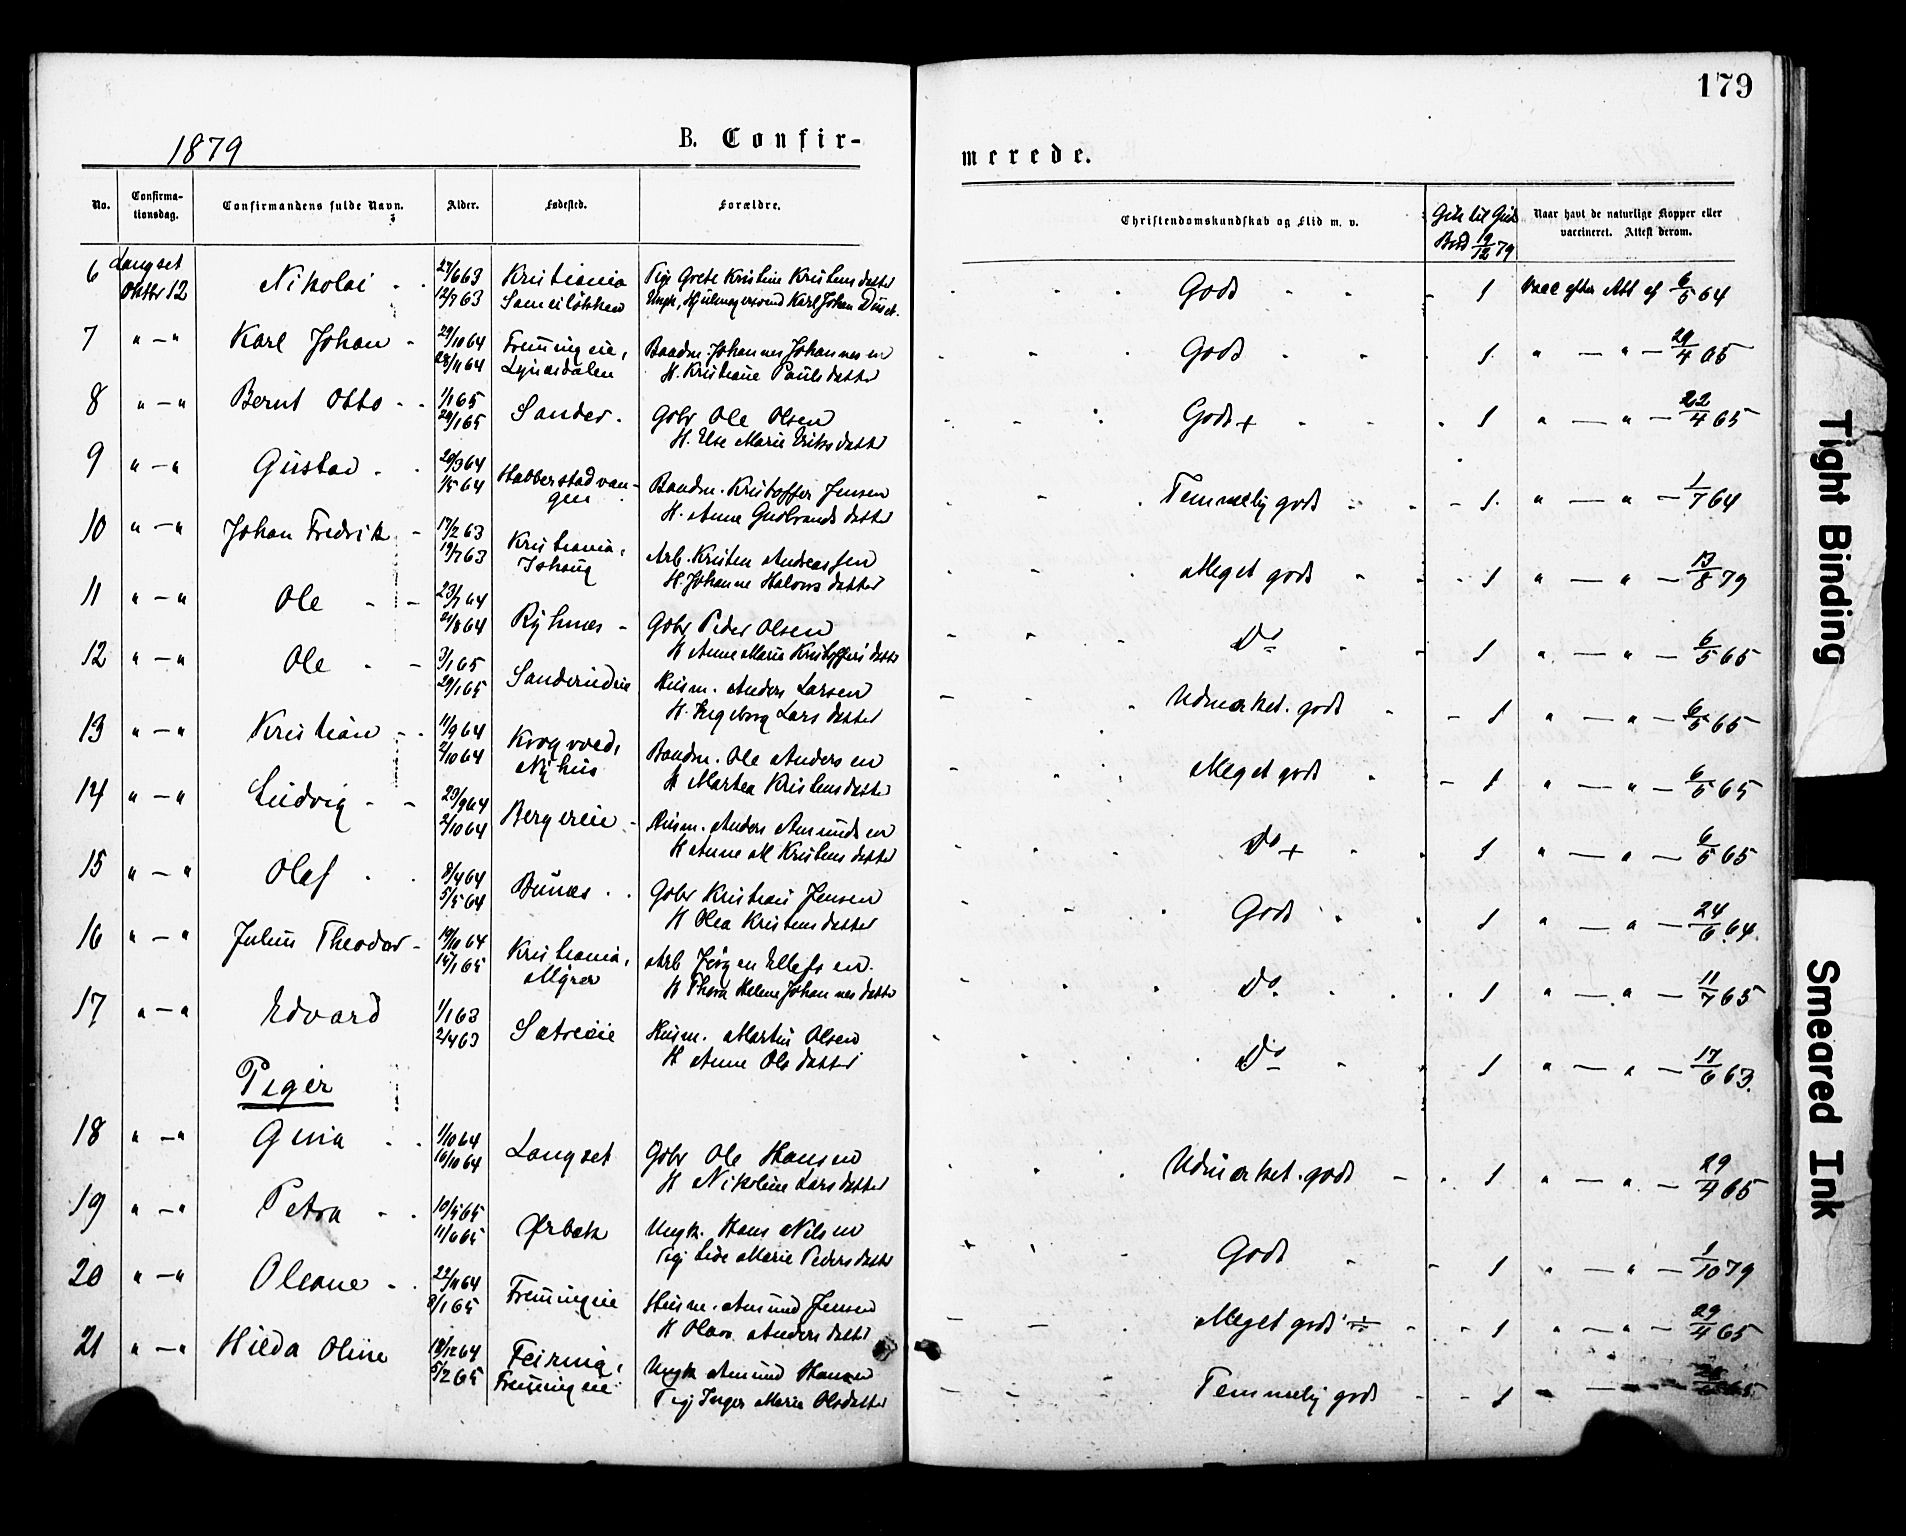 179
1879
B. Confir-
merede.
No.
Confirma-
tionsdag.
Confirmandens fulde Navn.
Alder.
Fødested.
Forældre.
Christendomskundskab og Flid m. v.
Gik til Guds
Bord 19/12 79
Naar havt de naturlige Kopper eller
vaccineret. Attest derom.
6 Langset Oktbr 12 Nikolai 27/6 63 12/7 63 Kristiania Pige Grete Kristine Kristensdatter
Ungk. Hjulmagersvend Karl Johan Godt 1 Vacc efter Att af 6/5 64
7 " — " Karl Johan 29/10 64 Baadm. Johannes Johannesen
H. Kristiane Paulsdatter Godt 1 " — " — 29/4 65
8 " — " Bernt Otto 1/1 65 29/1 65 Sander Gbr Ole Olsen
H. Else Marie Eriksdatter Godt + 1 " — " — 22/4 65
9 " — " Gustav 1/5 64 Habberstadvan-
gen Baadm. Kristoffer Jensen
H. Anne Gudbrandsdatter Temmelig godt 1 " — " — 1/7 64
10 " — " Johan Fredrik 17/2 63 19/7 63 Kristiania, Arb. Kristen Andreassen
H. Johanne Meget godt 1 " — " — 13/8 79
11 " — " Ole 23/7 64 21/8 64 Gbr Peder Olsen
H Anne Marie Kristoffersdatter Do 1 " — " — 6/5 65
12 " — " Ole 3/1 65 29/1 65 Husm. Anders Larsen
H. Ingeborg Larsdatter Udmærket. godt 1 " — " — 6/5 65
13 " — " Kristian 11/9 64 2/10 64 Nyhus Baadm. Ole Andersen
H Marthea Kristensdatter Meget godt 1 " — " — 6/5 65
14 " — " Ludvig 23/9 64 2/10 64 Bergereie Husm. Anders Amundsen
H Anne M Kristensdatter Do + 1 " — " — 6/5 65
15 " — " Olaf 8/4 64 5/5 64 Bunæs Gbr Kristian Jensen
H Olea Kristensdatter Godt 1 " — " — 24/6 64
16 " — " Julius Theodor 19/10 64 15/1 65 Kristiania, Arb Jörgen Ellefsen.
H Thora Helene Johannesdatter Do 1 " — " — 11/7 65
17 " — " Edvard 1/1 63 2/4 63 Sætreeie Husm. Martin Olsen
H Anne Olsdatter Do 1 " — " — 17/6 63.
Piger
18 " — " Gina 1/10 64 16/10 64 Langset Gbr Ole Hansen
H Nikoline Larsdatter Udmærket. godt 1 " — " — 29/4 65
19 " — " Petra 10/5 65 11/6 65 Ørbæk Ungk. Hans Nilsen
Pige Marie Pedersdatter Godt 1 " — " — 1/10 79
20 " — " Oleane 22/11 64 8/1 65 Fremmingeie Husm. Amund Jensen
H Olava Andersdatter Meget godt 1 " — " — 29/4 65
21 " — " Hilda Oline 5/2 65 Feiring,
Fremmingeie Ungk Amund Hansen
Pige Inger Marie Olsdatter Temmelig godt 1
Tight Binding
Smeared Ink